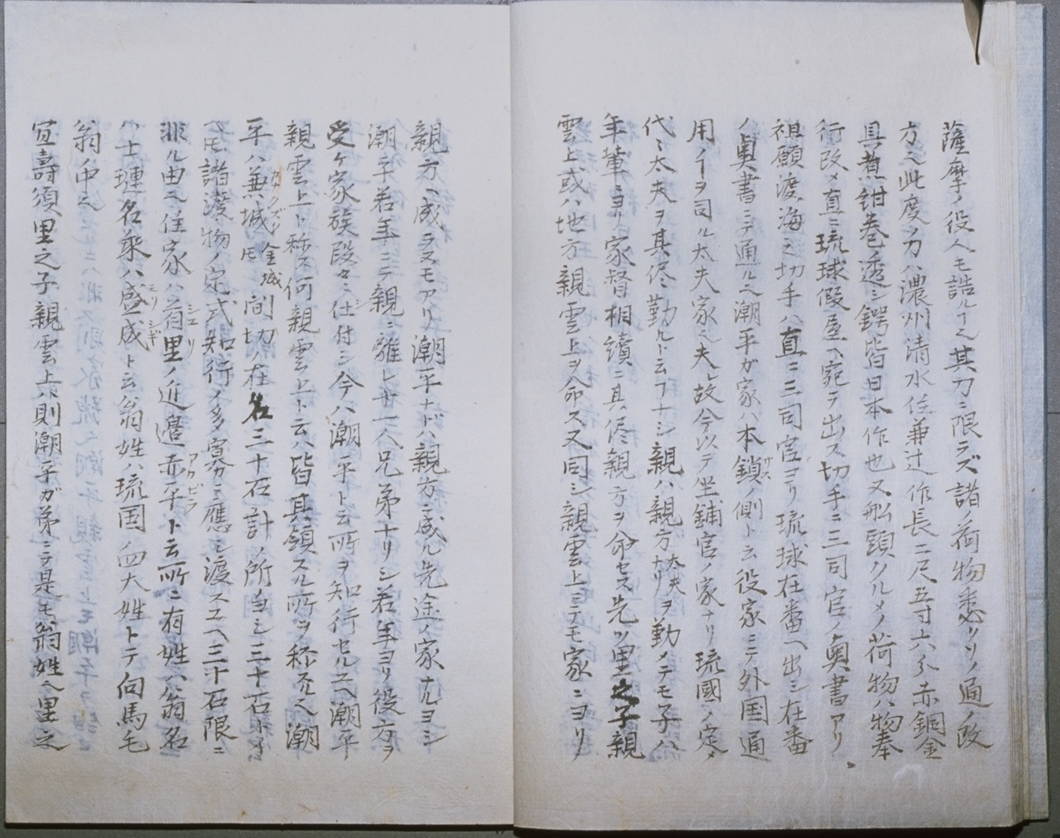 薩摩ノ役人モ詰ルヿ也其刀ニ限ラズ諸荷物悉クリノ通ノ改
方也此度ノ刀ハ濃州清水住兼辻作長二尺五寸六分赤銅金
具葛紺巻透シ鍔皆日本作也又舩頭クルメノ荷物ハ物奉
行改メ直ニ琉球假屋ヘ宛テ出ス切手ニ三司官ノ奥書アリ
祖願渡海之切手ハ直ニ三司官ヨリ琉球在番ヘ出シ在番
ノ奥書ニテ通ル也潮平ガ家ハ本鎖ノ側ト云役家ニテ外国通
用ノヿヲ司ル大夫家之夫故今以テ坐鋪官ノ家ナリ琉國ノ定
代々大夫ヲ其侭勤ルト云フナシ親ハ親方ナリ大夫ヲ勤メテモ子ハ
年輩ニヨリ家督相續ニ其侭親方ヲ命セズ先ツ里之子親
雲上或ハ地方親雲上ヲ命ス又同シ親雲上ニテモ家ニヨリ
親方ヘ成ラヌモアリ潮平ナドハ親方ニ成ル先途ノ家ナルヨシ
潮平若年ニテ親ニ離レ廿一人兄弟ナリシ若年ヨリ役方ヲ
受ケ家族段々仕付シ今ハ潮平ト云所ヲ知行セルユヘ潮平
親雲上ト称ス何親雲上ト云ハ皆其領スル所ヲ称スル也潮
平ハ兼城金城間切ノ在名三十石計所当シ三十石
ヘモ諸渡物ノ定式知行ノ多寡ニ應シ渡スユヘ三十石限ニ
非ル由也住家ハ首里ノ近邊赤平ト云所ニ有姓ハ翁名
ハ士璉名乗ハ盛成ト云翁姓ハ琉国四大姓トテ向馬毛
翁中也
宜壽須里之子親雲上ハ則潮平ガ弟ニテ是モ翁姓也里之